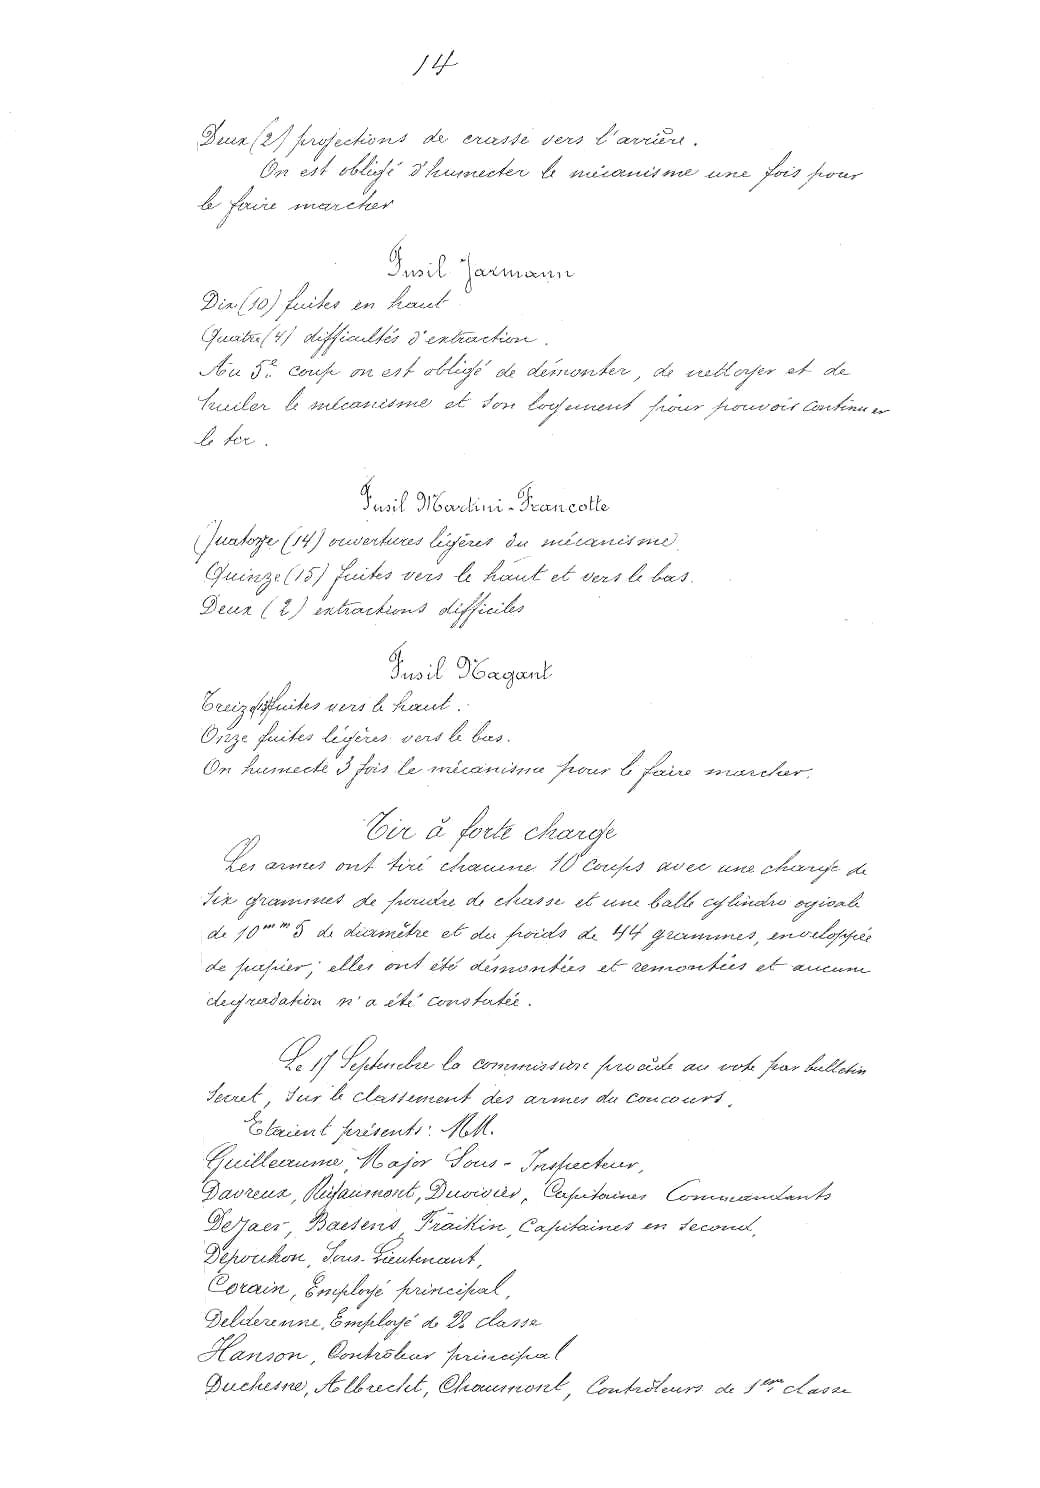 14
Deux (2) projections de crasse vers l'arrière.
On est obligé d'humecter le mécanisme une fois pour
le faire marcher
Fusil Jarmann
Dix (10) fuites en haut
Quatre (4) difficultés d'extraction.
Au 5e coup on est obligé de démonter, de nettoyer et de
huiler le mécanisme et son logement pour pouvoir continuer
le tir.
Fusil Martini-Francotte
Quatorze (14) ouvertures légères du mécanisme
Quinze (15) fuites vers le haut et vers le bas.
Deux (2) extractions difficiles
Fusil Nagant
Treize fuites vers le haut.
Onze fuites légères vers le bas.
On humecte 3 fois le mécanisme pour le faire marcher.
Tir à forte charge
Les armes ont tiré chacune 10 coups avec une charge de
six grammes de poudre de chasse et une balle cylindro ogivale
de 10mm5 de diamètre et du poids de 44 grammes, enveloppée
de papier; elles ont été démontées et remontées et aucune
dégradation n'a été constatée.
Le 17 Septembre la commission procède au vote par bulletin
secret, sur le classement des armes du concours.
Etaient présents: MM.
Guilleaume, Major Sous-Inspecteur,
Davreux, Duvivier, Capitaines Commandants
Dejaer, Baesens, Fraikin, Capitaines en second,
Depouhon, Sous-Lieutenant,
Corain, Employé principal,
Employé de 2e classe
Hanson, Contrôleur principal
Duchesne, Albrecht, Chaumont, Contrôleurs de 1ère classe